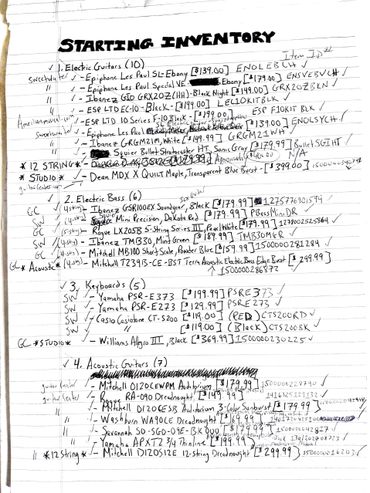 STARTING INVENTORY
Item ID #
✓ 1. Electric Guitars (10)
Sweetwater ✓ - Epiphone Les Paul SL-Ebony [$139.00] ENOLEBCH ✓
" ✓ - Epiphone Les Paul Special VE [$179.00] ENSVEBVCH ✓
" ✓ - Ibanez GIO GRX20Z (HH)-Black Night [$149.00] GRX20ZBKN ✓
✓ - ESP LTD EC-10-Black [$199.00] LEC10KITBLK ✓
✓ - ESP LTD 10 Series F-10 Black ESP F10KIT BLK ✓
Sweetwater ✓ - Epiphone Les Paul ENOLSVCH ✓
" ✓ - Ibanez GRGM21M, White [$199.99] GRGM21WH
✓ - Squier Bullet Stratocaster HT, Sonic Gray [$179.99] Bullet SGIHT ✓
*12 STRING* N/A
*STUDIO* ✓ - Dean MDX X Quilt Maple, Transparent Blue Burst - [$399.00]
guitar center
✓ 2. Electric Bass (6)
GC ✓ - (4 string) Ibanez GSR100EX Soundgear, Black [$179.99] 1275776301594 ✓
SW ✓ - Mini Precision, Dakota Red [$179.99] PGessMiniDR
GC ✓ - Rogue LX205B 5-String Series III, Pearl White [$179.99]
SW ✓ - Ibanez TMB30, Mint Green [$199.99] TMB30MGR ✓
GC ✓ - Mitchell MB100 Short Scale, Powder Blue [$159.99] 1500000281284 ✓
GC *Acoustic* ✓ - Mitchell T239B-CE-BST Terra Acoustic Electric Bass Edge Burst [$249.99] ✓
↑ 1500000286872
✓ 3. Keyboards (5)
SW ✓ - Yamaha PSR-E373 [$199.99] PSRE373 ✓
SW ✓ - Yamaha PSR-E273 [$129.99] PSRE273 ✓
SW ✓ - Casio Casiotone CT-S200 [$119.00] (RED) CTS200RD ✓
SW ✓ - " [$119.00] (Black) CTS200BK ✓
GC *STUDIO* ✓ - Williams Allegro III, Black [$369.99] 1500000230225 ✓
✓ 4. Acoustic Guitars (7)
guitar center ✓ - Mitchell O120CEWPM Auditorium [$179.99]
guitar center ✓ - Rogue RA-090 Dreadnought [$149.99]
" ✓ - Mitchell O120CESB Auditorium 3-Color Sunburst [$179.99] ✓
" ✓ - Washburn WA90CE Dreadnought
" ✓ - Savannah SO-SGD-09E-BK 000 [$179.99]
" ✓ - Yamaha APXT2 3/4 Thinline [$199.99]
" *12 String* ✓ - Mitchell D120S12E 12-String Dreadnought [$299.99]